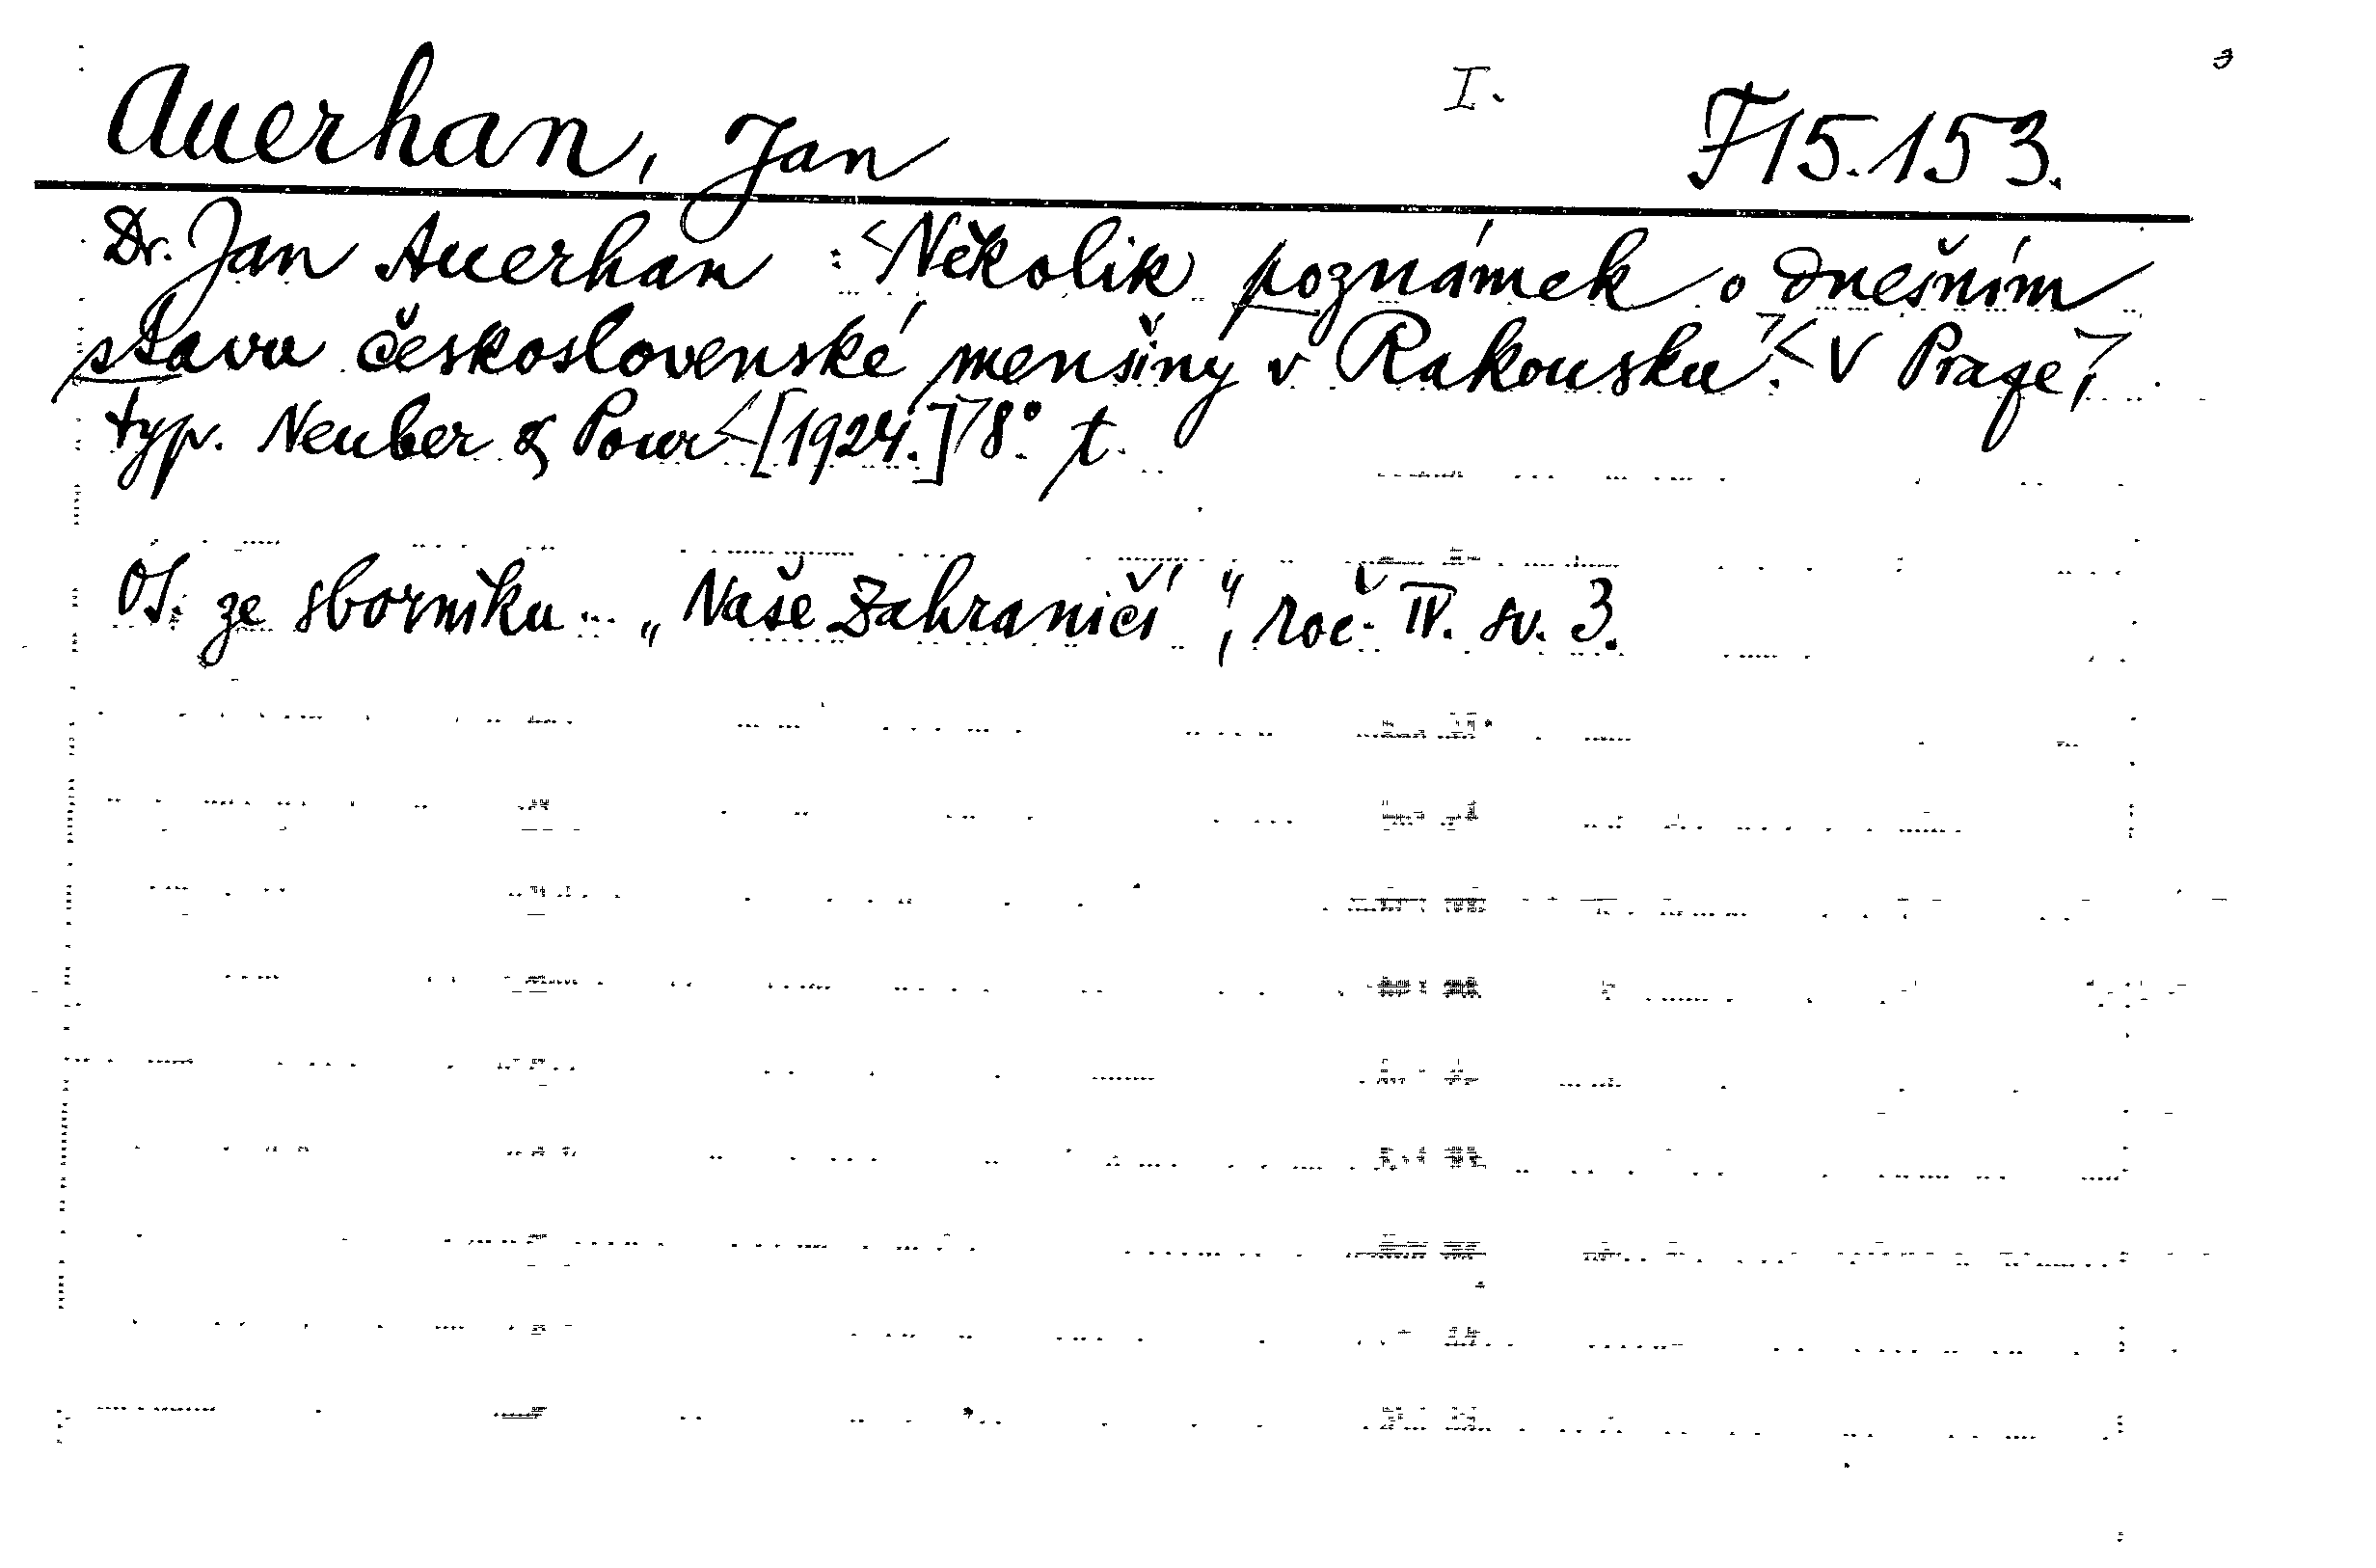 Auerhan, Jan I. F 15.153.
Dr. Jan Auerhan : <Několik poznámek o dnešním
stavu československé menšiny v Rakousku>. <V Praze>,
typ. Neuber & Pour <[1924.]> 8° t.
Ot. ze sborníku „Naše Zahraničí“, roč. IV. sv. 3.